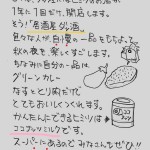 1年に1回だけ、開店します。
そう！「居酒屋ダレ酒」
色々な人が自慢の一品をもちよって
秋の夜を楽しくすごします。
ちなみに自分の一品は
グリーンカレー
なすととり肉だけで
とてもおいしくつくれます。
かんたんにできるヒミツは
ココナッツミルクです。
スーパーにあるのでみなさんもぜひ!!